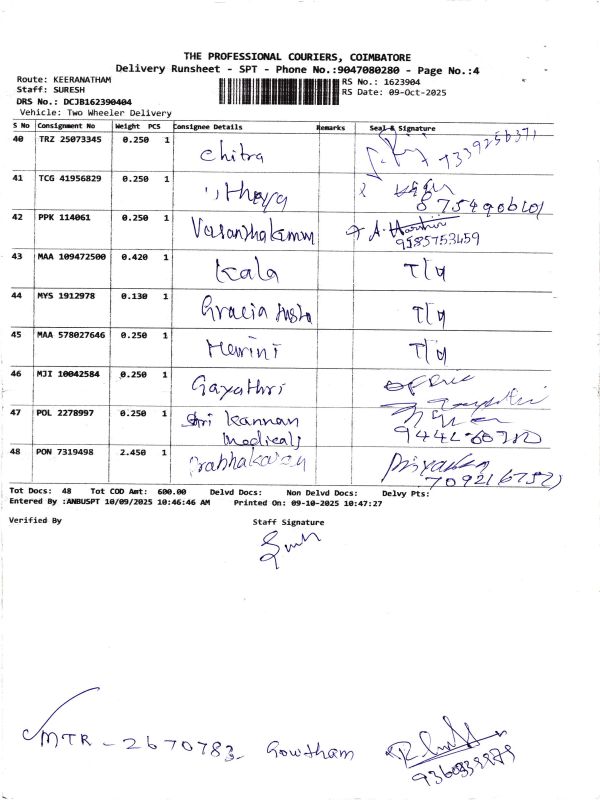 THE PROFESSIONAL COURIERS, COIMBATORE
Delivery Runsheet - SPT - Phone No.:9047080280 - Page No.:4
Route: KEERANATHAM RS No.: 1623904
Staff: SURESH RS Date: 09-Oct-2025
DRS No.: DCJB162390404
Vehicle: Two Wheeler Delivery
S No Consignment No Weight PCS Consignee Details Remarks Seal & Signature
40 TRZ 25073345 0.250 1 Chitra
41 TCG 41956829 0.250 1
42 PPK 114061 0.250 1 Vasanthakumar 9585753459
43 MAA 109472500 0.420 1 Kala T/W
44 MYS 1912978 0.130 1 Gracia T/W
45 MAA 578027646 0.250 1 Harini T/W
46 MJI 10042584 0.250 1 Gayathri office
47 POL 2278997 0.250 1 Sri Kannan
Medicals
48 PON 7319498 2.450 1 Prabhakaran
Tot Docs: 48 Tot COD Amt: 600.00 Delvd Docs: Non Delvd Docs: Delvy Pts:
Entered By :ANBUSPT 10/09/2025 10:46:46 AM Printed On: 09-10-2025 10:47:27
Verified By Staff Signature
MTR - 2670783 Gowtham